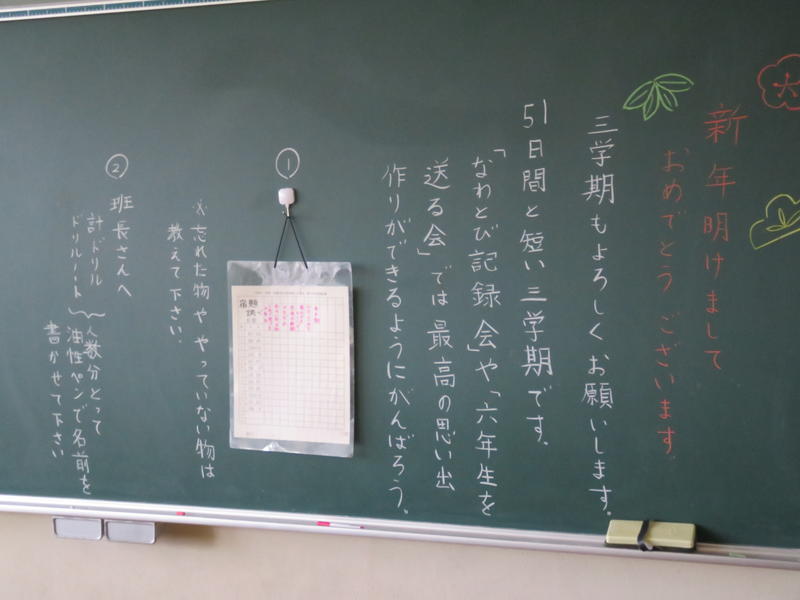 新年明けまして
おめでとうございます。
三学期もよろしくお願いします。
51日間と短い三学期です。
「なわとび記録会」や「六年生を
送る会」では最高の思い出
作りができるようにがんばろう。
①
※忘れた物ややっていない物は
教えて下さい。
②班長さんへ
計ドリル
ドリルノート
人数分とって
油性ペンで名前を
書かせて下さい